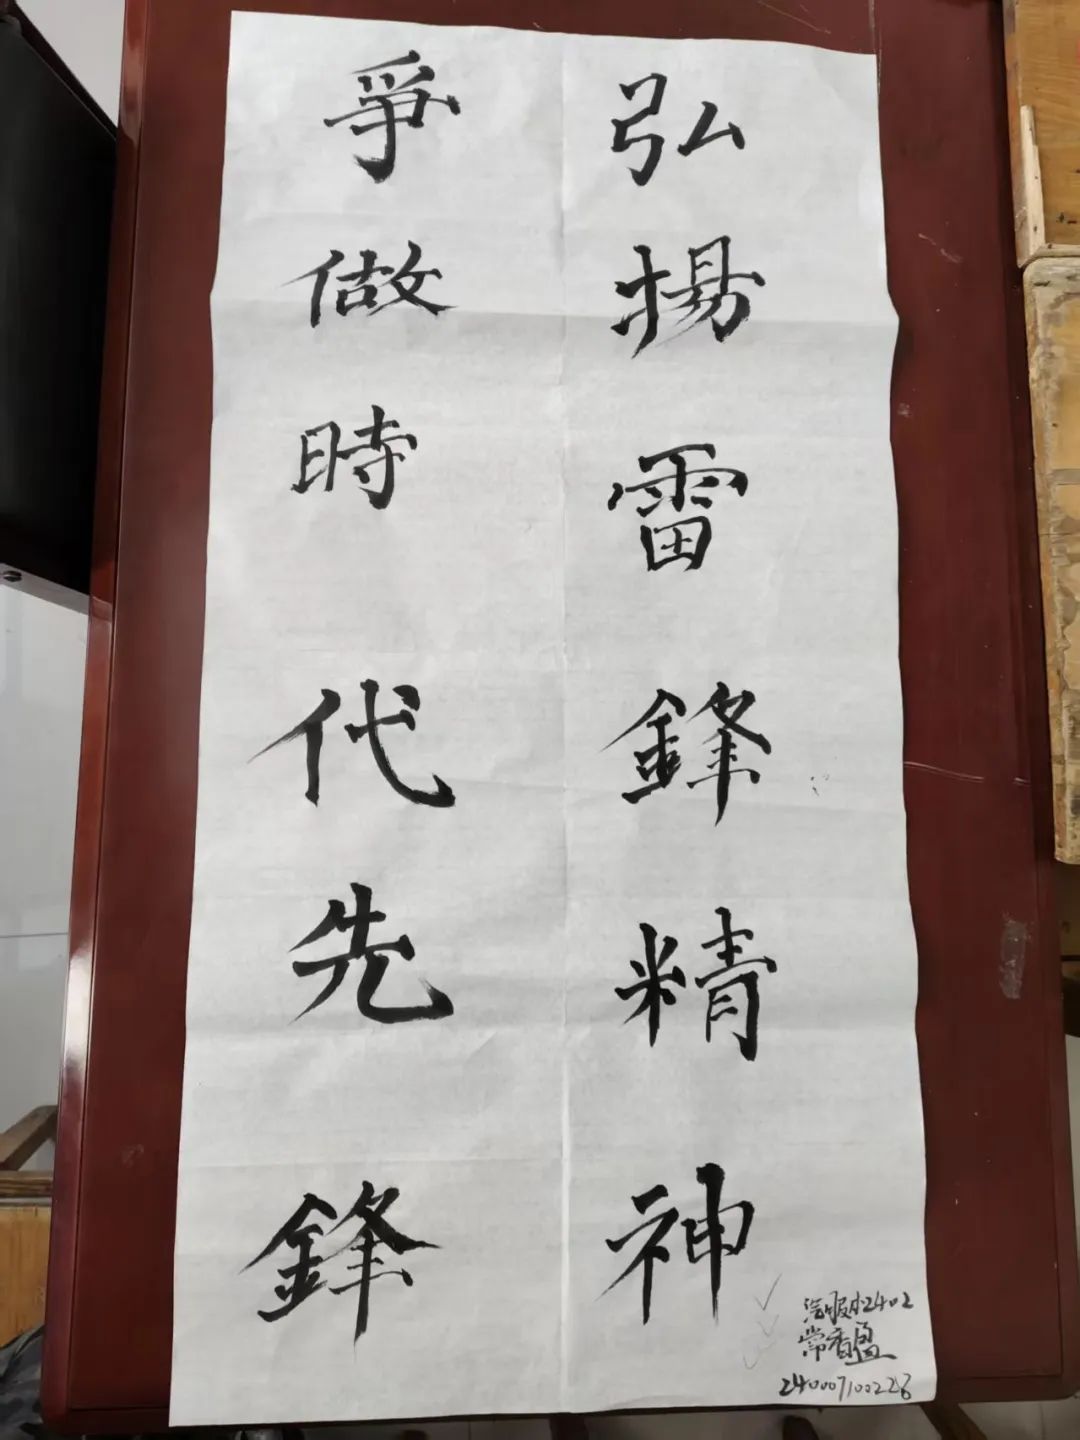 弘揚雷鋒精神
爭做時代先鋒
汽服本2402
常香盈
240007100226